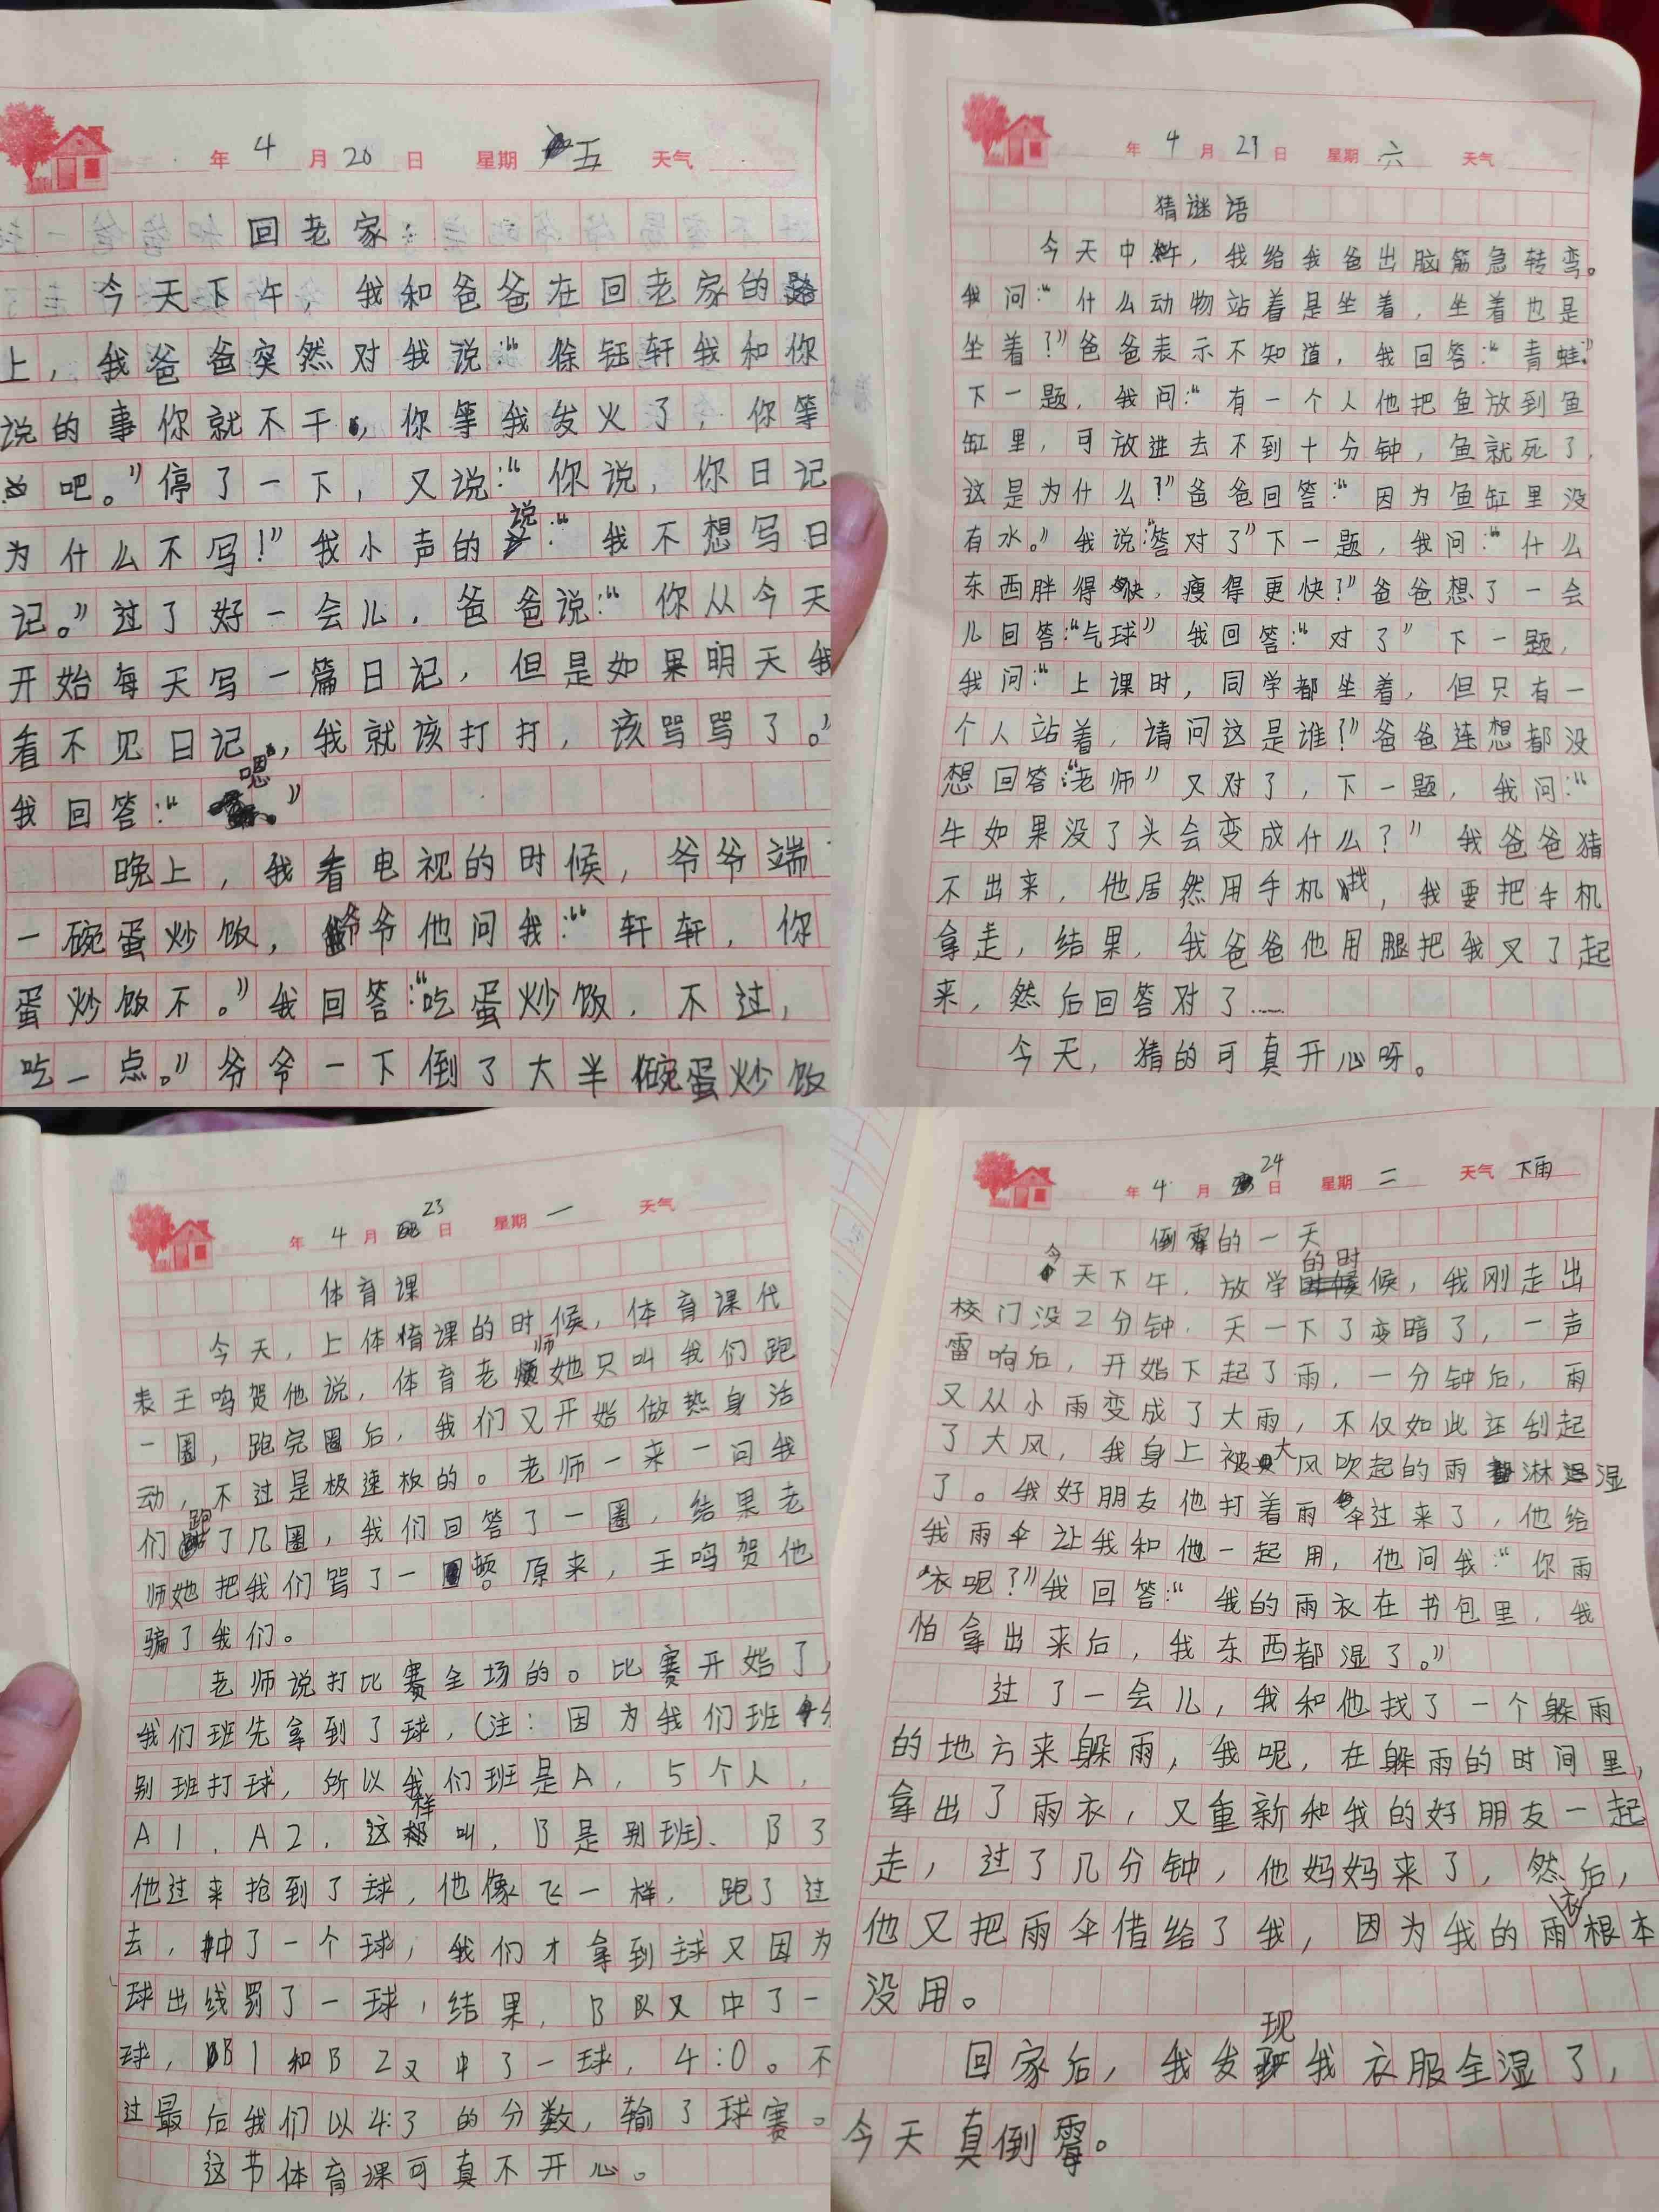 年 4 月 20 日 星期 五 天气
回老家
今天下午，我和爸爸在回老家的路
上，我爸爸突然对我说：“徐钰轩我和你
说的事你就不干，你等我发火了，你等
吧。”停了一下，又说：“你说，你日记
为什么不写！”我小声的说：“我不想写日
记。”过了好一会儿，爸爸说：“你从今天
开始每天写一篇日记，但是如果明天我
看不见日记，我就该打打，该骂骂了。”
我回答：“嗯”
晚上，我看电视的时候，爷爷端
一碗蛋炒饭，爷爷他问我：“轩轩，你
蛋炒饭不。”我回答：“吃蛋炒饭，不过，
吃一点。”爷爷一下倒了大半碗蛋炒饭
年 4 月 21 日 星期 六 天气
猜谜语
今天中午，我给我爸出脑筋急转弯。
我问：“什么动物站着是坐着，坐着也是
坐着？”爸爸表示不知道，我回答：“青蛙”
下一题，我问：“有一个人他把鱼放到鱼
缸里，可放进去不到十分钟，鱼就死了，
这是为什么？”爸爸回答：“因为鱼缸里没
有水。”我说：“答对了”下一题，我问：“什么
东西胖得快，瘦得更快？”爸爸想了一会
儿回答：“气球”我回答：“对了”下一题，
我问：“上课时，同学都坐着，但只有一
个人站着，请问这是谁？”爸爸连想都没
想回答：“老师”又对了，下一题，我问：“
牛如果没了头会变成什么？”我爸爸猜
不出来，他居然用手机找，我要把手机
拿走，结果，我爸爸他用腿把我叉了起
来，然后回答对了……
今天，猜的可真开心呀。
年 4 月 23 日 星期 一 天气
体育课
今天，上体育课的时候，体育课代
表王鸣贺他说，体育老师她只叫我们跑
一圈，跑完圈后，我们又开始做热身活
动，不过是极速板的。老师一来一问我
们跑了几圈，我们回答了一圈，结果老
师她把我们骂了一顿。原来，王鸣贺他
骗了我们。
老师说打比赛全场的。比赛开始了，
我们班先拿到了球，（注：因为我们班和
别班打球，所以我们班是A，5个人，
A1，A2，这样叫，B是别班）、B3
他过来抢到了球，他像飞一样，跑了过
去，中了一个球，我们才拿到球又因为
球出线罚了一球，结果，B队又中了一
球，B1和B2又中了一球，4:0。不
过最后我们以4:3的分数，输了球赛。
这节体育课可真不开心。
年 4 月 24 日 星期 二 天气 下雨
倒霉的一天
今天下午，放学的时候，我刚走出
校门没2分钟，天一下了变暗了，一声
雷响后，开始下起了雨，一分钟后，雨
又从小雨变成了大雨，不仅如此还刮起
了大风，我身上被大风吹起的雨淋湿
了。我好朋友他打着雨伞过来了，他给
我雨伞让我和他一起用，他问我：“你雨
衣呢？”我回答：“我的雨衣在书包里，我
怕拿出来后，我东西都湿了。”
过了一会儿，我和他找了一个躲雨
的地方来躲雨，我呢，在躲雨的时间里，
拿出了雨衣，又重新和我的好朋友一起
走，过了几分钟，他妈妈来了，然后，
他又把雨伞借给了我，因为我的雨衣根本
没用。
回家后，我发现我衣服全湿了，
今天真倒霉。